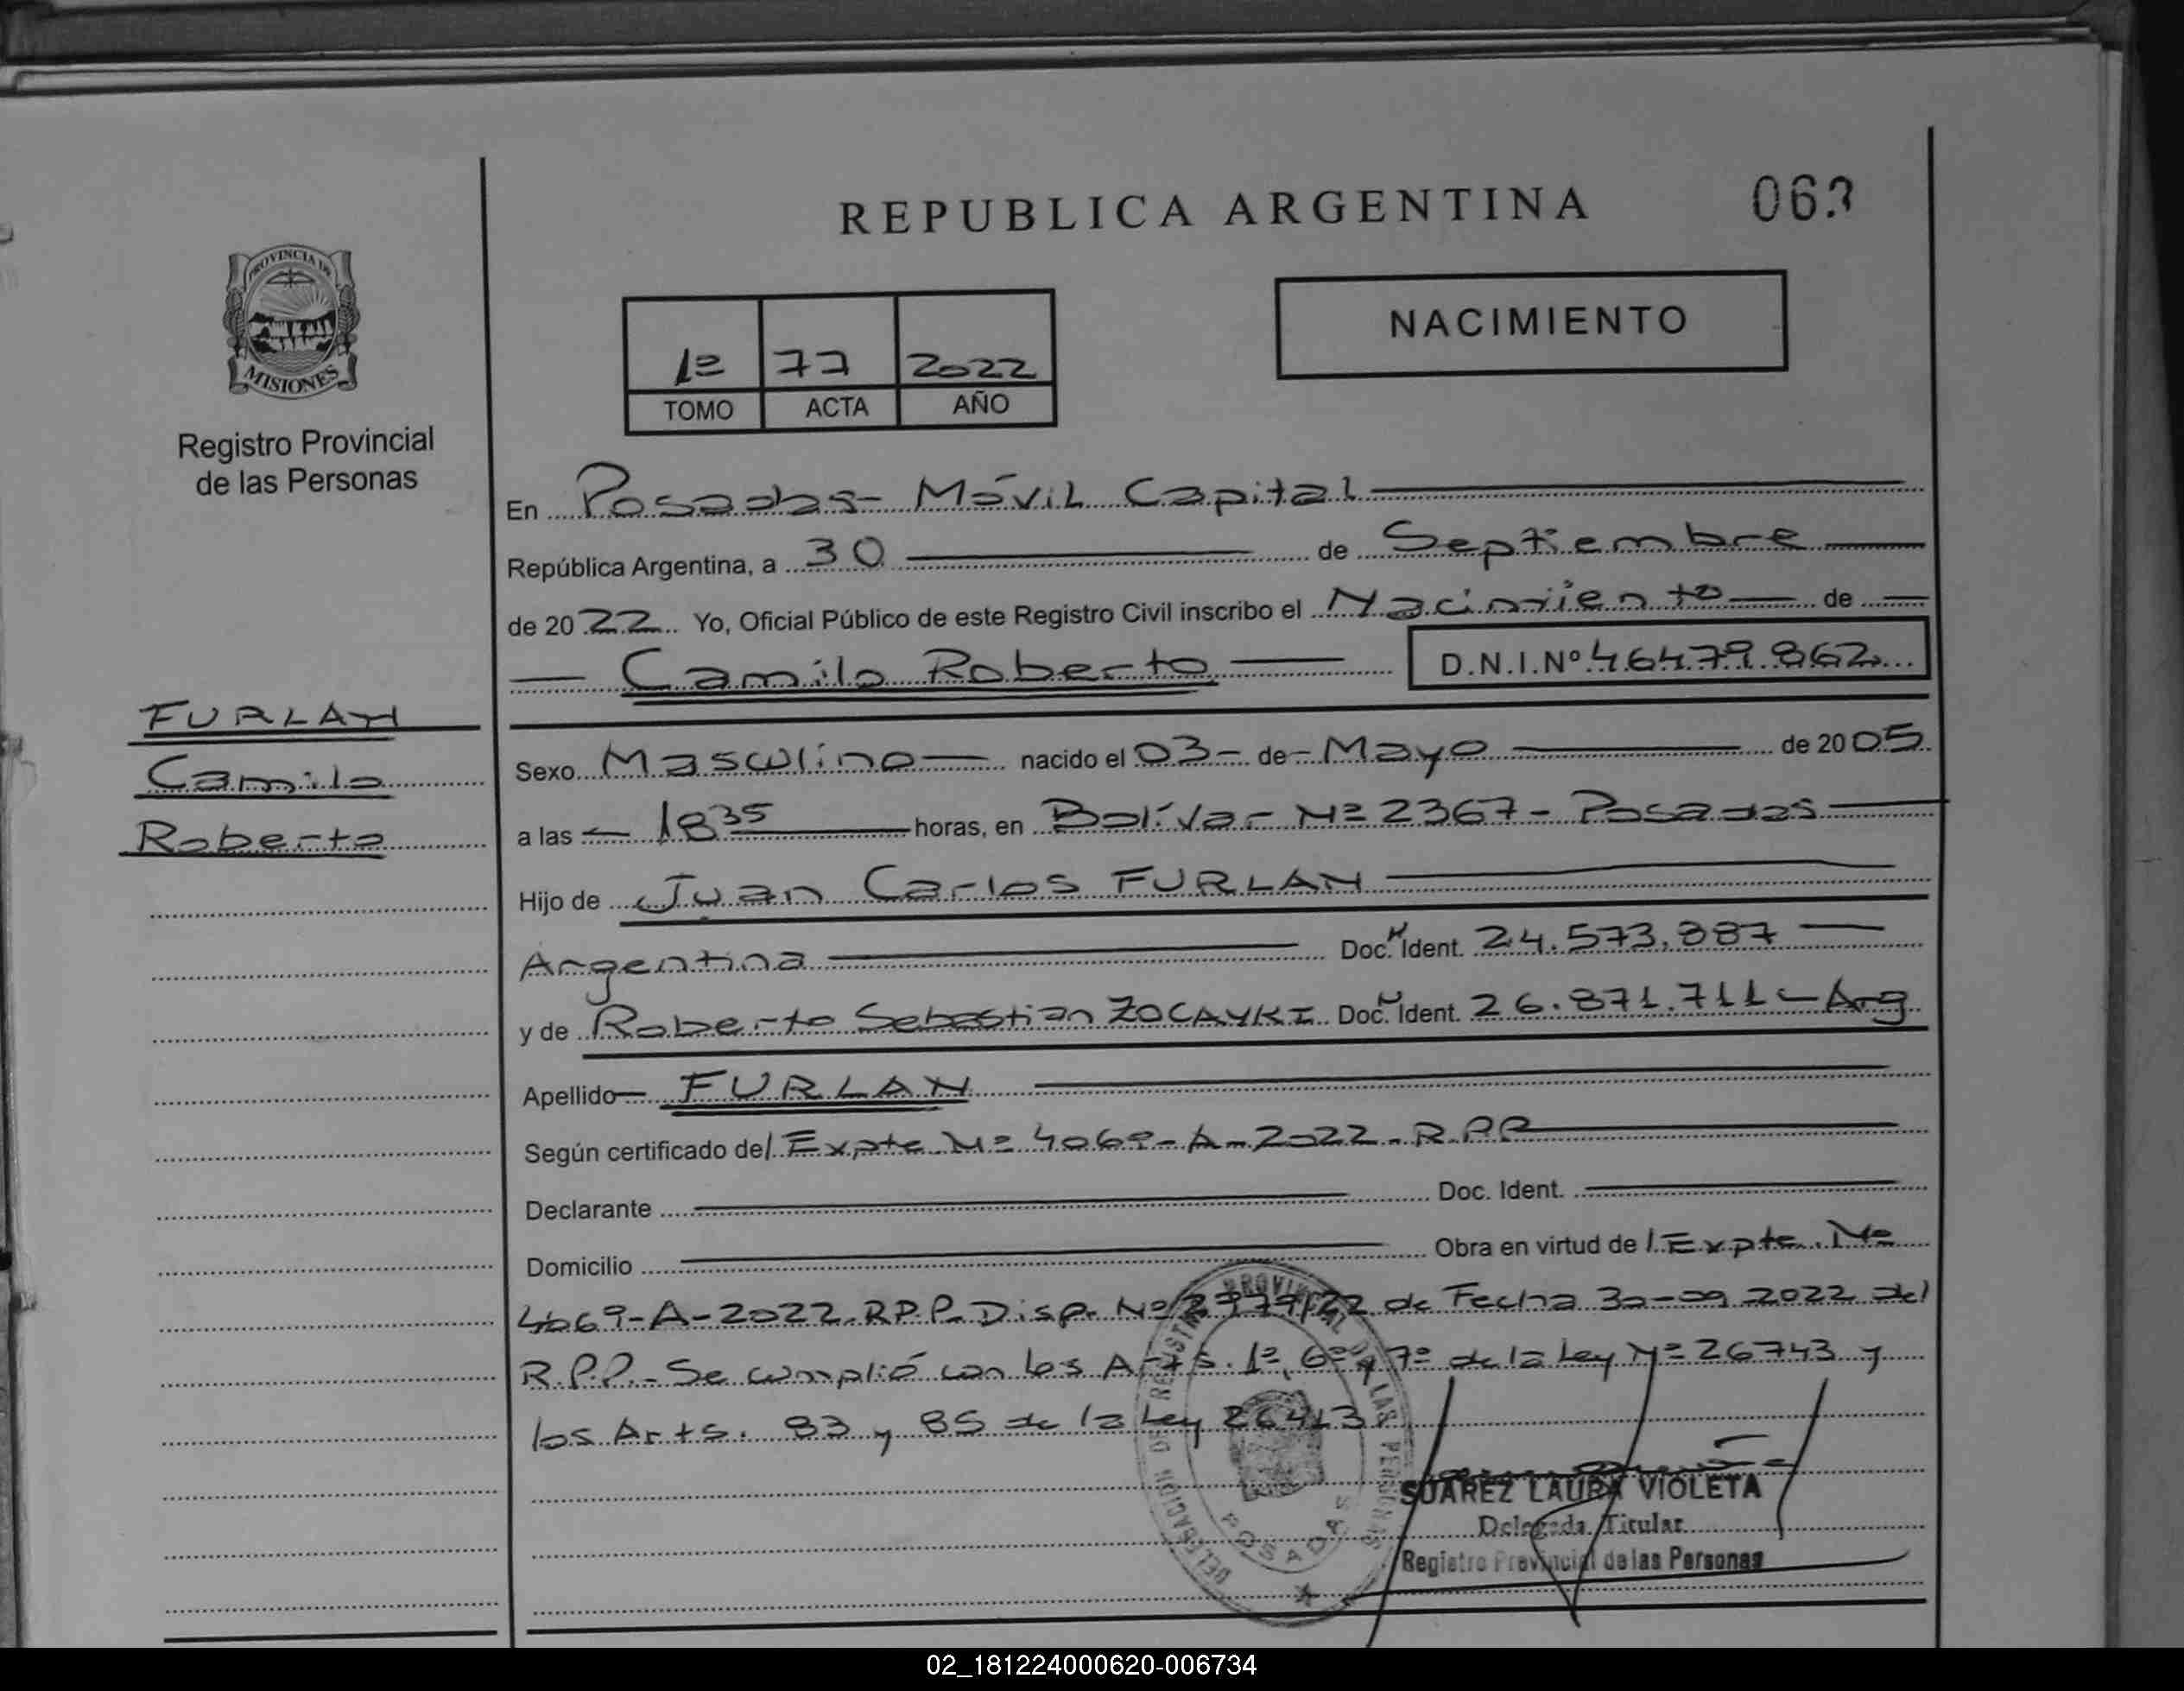 REPUBLICA ARGENTINA
063
PROVINCIA DE
MISIONES
Registro Provincial
de las Personas
NACIMIENTO
1º 77 2022
TOMO ACTA AÑO
En Posadas - Móvil Capital
República Argentina, a 30 de Septiembre
de 2022 Yo, Oficial Público de este Registro Civil inscribo el Nacimiento de
Camilo Roberto D.N.I.Nº 46479.862
FURLAN
Camilo
Roberto
Sexo Masculino nacido el 03 - de - Mayo de 2005
a las 18 35 horas, en Bolívar Nº 2367 - Posadas
Hijo de Juan Carlos FURLAN
Argentina Doc. N Ident. 24.573.887
y de Roberto Sebastian ZOCAYKI Doc. N Ident. 26.871.711 - Arg
Apellido FURLAN
Según certificado de/ Expte Nº 4069-A-2022-R.P.P
Declarante Doc. Ident.
Domicilio Obra en virtud de / Expte. Nº
4069-A-2022-R.P.P- Disp. Nº /22 de Fecha 30-09 2022 del
R.P.P.- Se cumplió con los Arts. 1º, 6º y 7º de la Ley Nº 26743 y
los Arts. 83 y 85 de la Ley 26413
DELEGACIÓN DEL REGISTRO PROVINCIAL DE LAS PERSONAS
POSADAS
SUAREZ LAURA VIOLETA
Delegada Titular
Registro Provincial de las Personas
02_181224000620-006734